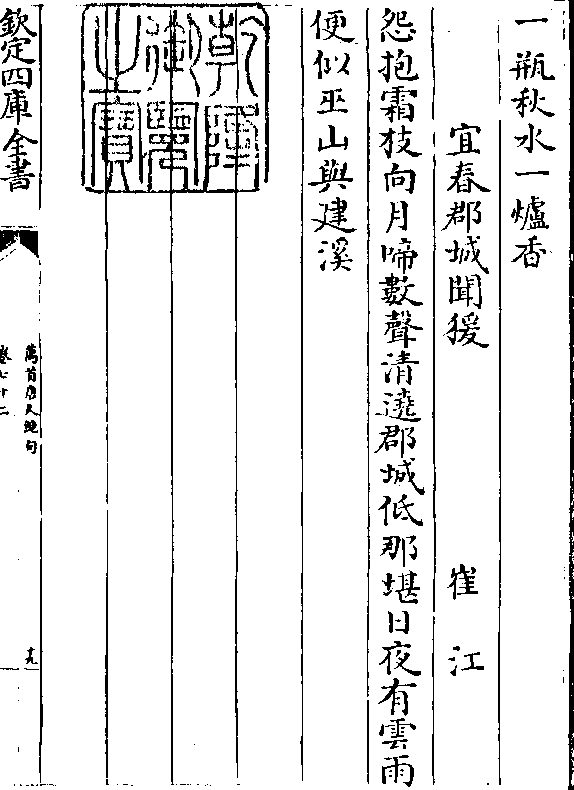 一瓶秋水一爐香
宜春郡城聞猨 崔江
怨抱霜枝向月啼數聲清遶郡城低那堪日夜有雲雨
便似巫山與建溪
乾隆御覽之寶
欽定四庫全書
萬首唐人絕句
卷七十二
十九